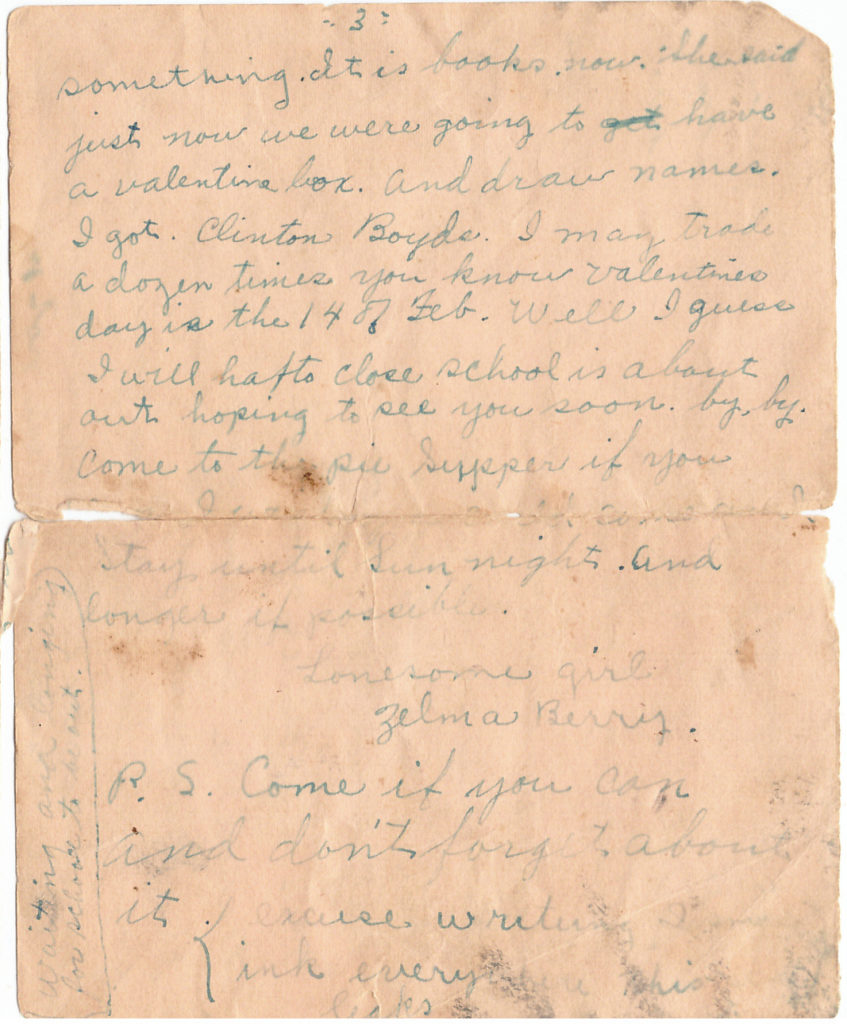 -: 3 :-
something. It is books now. She said
just now we were going to get have
a valentine box. and draw names.
I got. Clinton Boyds. I may trade
a dozen times you know valentines
day is the 14 of Feb. Well I guess
I will hafto close school is about
out hoping to see you soon. by, by.
Come to the pie Supper if you
come and
stay until Sun night. and
longer if possible.
Lonesome girl
Zelma Berry.
P. S. Come if you can
and don't forget about
it (excuse writing I
ink every this
leaks
Waiting and longing
for school to be out.